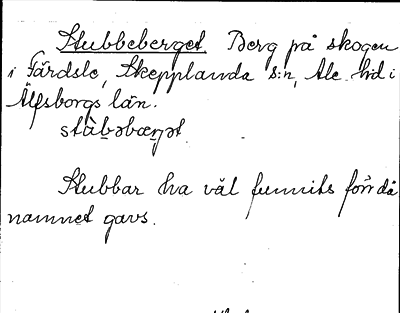 Stubbeberget. Berg på skogen
i Färdsle, Skepplanda s:n, Ale hd i
Älfsborgs län.
Stubbar ha väl funnits förr då
namnet gavs.